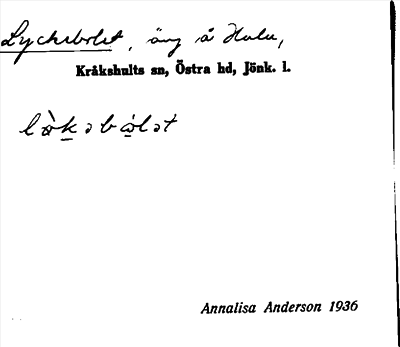 Lyckebolet, äng å Hulu,
Kråkshults sn, Östra hd, Jönk. l.
lø̀kəbo̱lət
Annalisa Anderson 1936